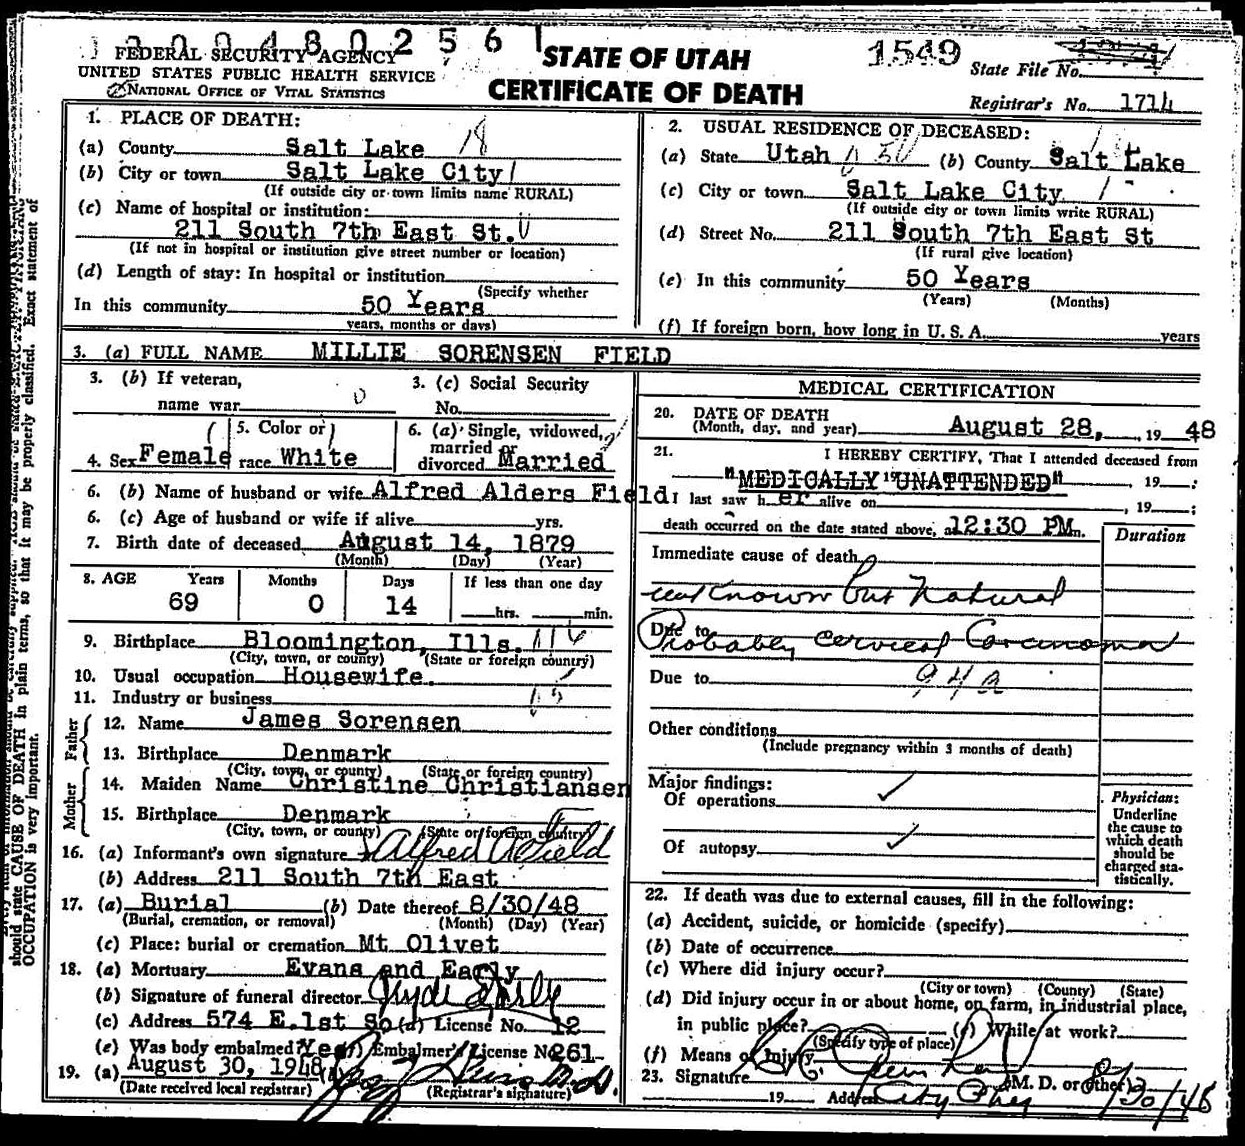 FEDERAL SECURITY AGENCY
UNITED STATES PUBLIC HEALTH SERVICE
NATIONAL OFFICE OF VITAL STATISTICS
STATE OF UTAH
CERTIFICATE OF DEATH
1549
State File No.
Registrar's No. 1714
1. PLACE OF DEATH:
(a) County Salt Lake 18
(b) City or town Salt Lake City
(If outside city or town limits name RURAL)
(c) Name of hospital or institution:
211 South 7th East St.
(If not in hospital or institution give street number or location)
(d) Length of stay: In hospital or institution
(Specify whether
In this community 50 Years
years, months or days)
2. USUAL RESIDENCE OF DECEASED:
(a) State Utah (b) County Salt Lake
(c) City or town Salt Lake City
(If outside city or town limits write RURAL)
(d) Street No. 211 South 7th East St
(If rural give location)
(e) In this community 50 Years
(Years) (Months)
(f) If foreign born, how long in U. S. A. years
3. (a) FULL NAME MILLIE SORENSEN FIELD
3. (b) If veteran,
name war
3. (c) Social Security
No.
4. Sex Female
5. Color or
race White
6. (a) Single, widowed,
married or
divorced Married
6. (b) Name of husband or wife Alfred Alders Field
6. (c) Age of husband or wife if alive yrs.
7. Birth date of deceased August 14, 1879
(Month) (Day) (Year)
8. AGE Years Months Days If less than one day
69 0 14 hrs. min.
9. Birthplace Bloomington, Ills.
(City, town, or county) (State or foreign country)
10. Usual occupation Housewife.
11. Industry or business
Father
12. Name James Sorensen
13. Birthplace Denmark
(City, town, or county) (State or foreign country)
Mother
14. Maiden Name Christine Christiansen
15. Birthplace Denmark
(City, town, or county) (State or foreign country)
16. (a) Informant's own signature Alfred A Field
(b) Address 211 South 7th East
17. (a) Burial (b) Date thereof 8/30/48
(Burial, cremation, or removal) (Month) (Day) (Year)
(c) Place: burial or cremation Mt Olivet
18. (a) Mortuary Evans and Early
(b) Signature of funeral director Clyde Early
(c) Address 574 E.1st So (d) License No. 12
(e) Was body embalmed? Yes (f) Embalmer's License No 261
19. (a) August 30, 1948 (b)
(Date received local registrar) (Registrar's signature)
MEDICAL CERTIFICATION
20. DATE OF DEATH
(Month, day, and year) August 28, 19 48
21. I HEREBY CERTIFY, That I attended deceased from
"MEDICALLY UNATTENDED" , 19 ;
I last saw h er alive on , 19 ;
death occurred on the date stated above, at 12:30 PM m.
Duration
Immediate cause of death
unknown but Natural
Due to
Probably cervical Carcinoma
Due to
Other conditions
(Include pregnancy within 3 months of death)
Major findings:
Of operations ✓
Of autopsy ✓
Physician:
Underline
the cause to
which death
should be
charged sta-
tistically.
22. If death was due to external causes, fill in the following:
(a) Accident, suicide, or homicide (specify)
(b) Date of occurrence
(c) Where did injury occur?
(City or town) (County) (State)
(d) Did injury occur in or about home, on farm, in industrial place,
in public place? (e) While at work?
(Specify type of place)
(f) Means of Injury
23. Signature M. D. or other)
19 Address City Phy 8/30/48
should state CAUSE OF DEATH in plain terms, so that it may be properly classified. Exact statement of
OCCUPATION is very important.